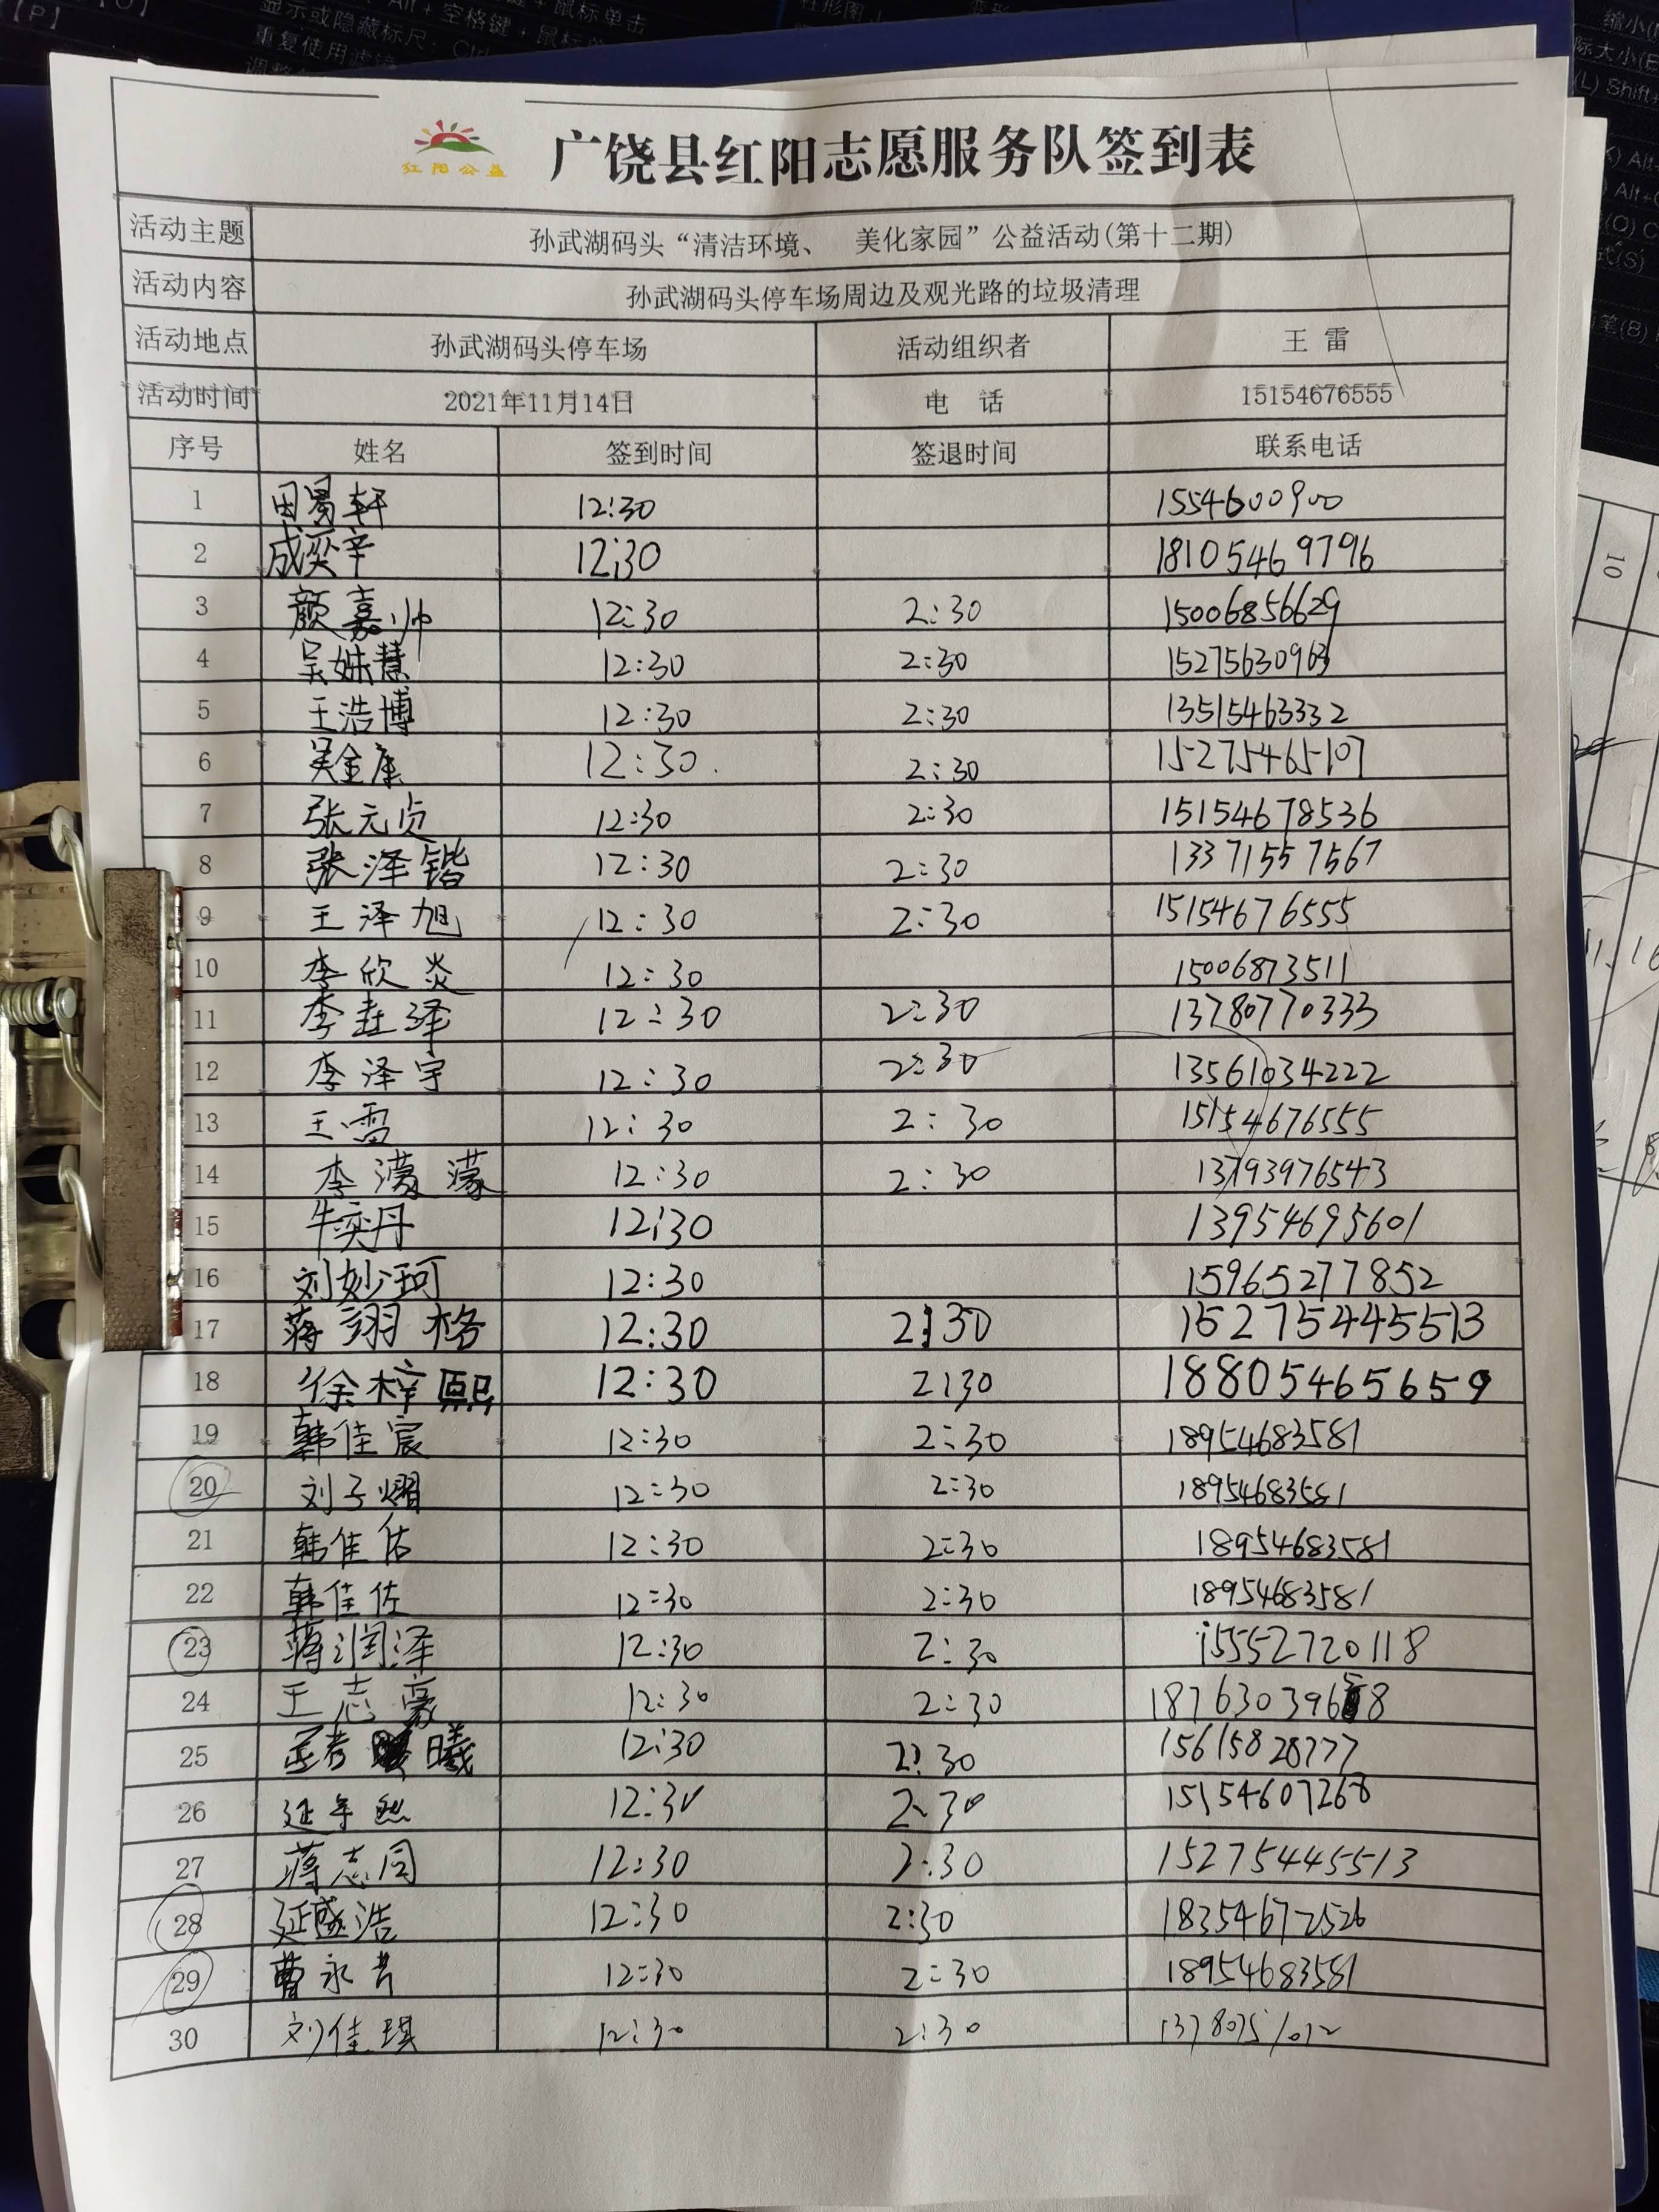 红阳公益
广饶县红阳志愿服务队签到表
活动主题 孙武湖码头“清洁环境、 美化家园”公益活动(第十二期)
活动内容 孙武湖码头停车场周边及观光路的垃圾清理
活动地点 孙武湖码头停车场 活动组织者 王 雷
活动时间 2021年11月14日 电 话 15154676555
序号 姓名 签到时间 签退时间 联系电话
1 田昜轩 12:30 1554600900
2 成奕辛 12:30 18105469796
3 颜嘉帅 12:30 2:30 15006856629
4 吴姝慧 12:30 2:30 15275630963
5 王浩博 12:30 2:30 13515463332
6 吴金康 12:30 2:30 15275465107
7 张元贞 12:30 2:30 15154678536
8 张泽锴 12:30 2:30 13371557567
9 王泽旭 12:30 2:30 15154676555
10 李欣炎 12:30 15006873511
11 李垚泽 12:30 2:30 13780770333
12 李泽宇 12:30 2:30 13561034222
13 王雷 12:30 2:30 15154676555
14 李濛濛 12:30 2:30 13793976543
15 牛奕丹 12:30 13954695601
16 刘妙珂 12:30 15965277852
17 蒋翊格 12:30 2:30 15275445513
18 徐梓熙 12:30 2:30 18805465659
19 韩佳宸 12:30 2:30 18954683581
20 刘子熠 12:30 2:30 18954683581
21 韩佳佑 12:30 2:30 18954683581
22 韩佳佐 12:30 2:30 18954683581
23 蒋润泽 12:30 2:30 15552720118
24 王志豪 12:30 2:30 187630396 8
25 曦 12:30 2:30 15615828777
26 延 12:30 2:30 15154607268
27 蒋志同 12:30 2:30 15275445513
28 延盛浩 12:30 2:30 18354672526
29 曹永 12:30 2:30 18954683581
30 刘佳琪 12:30 2:30